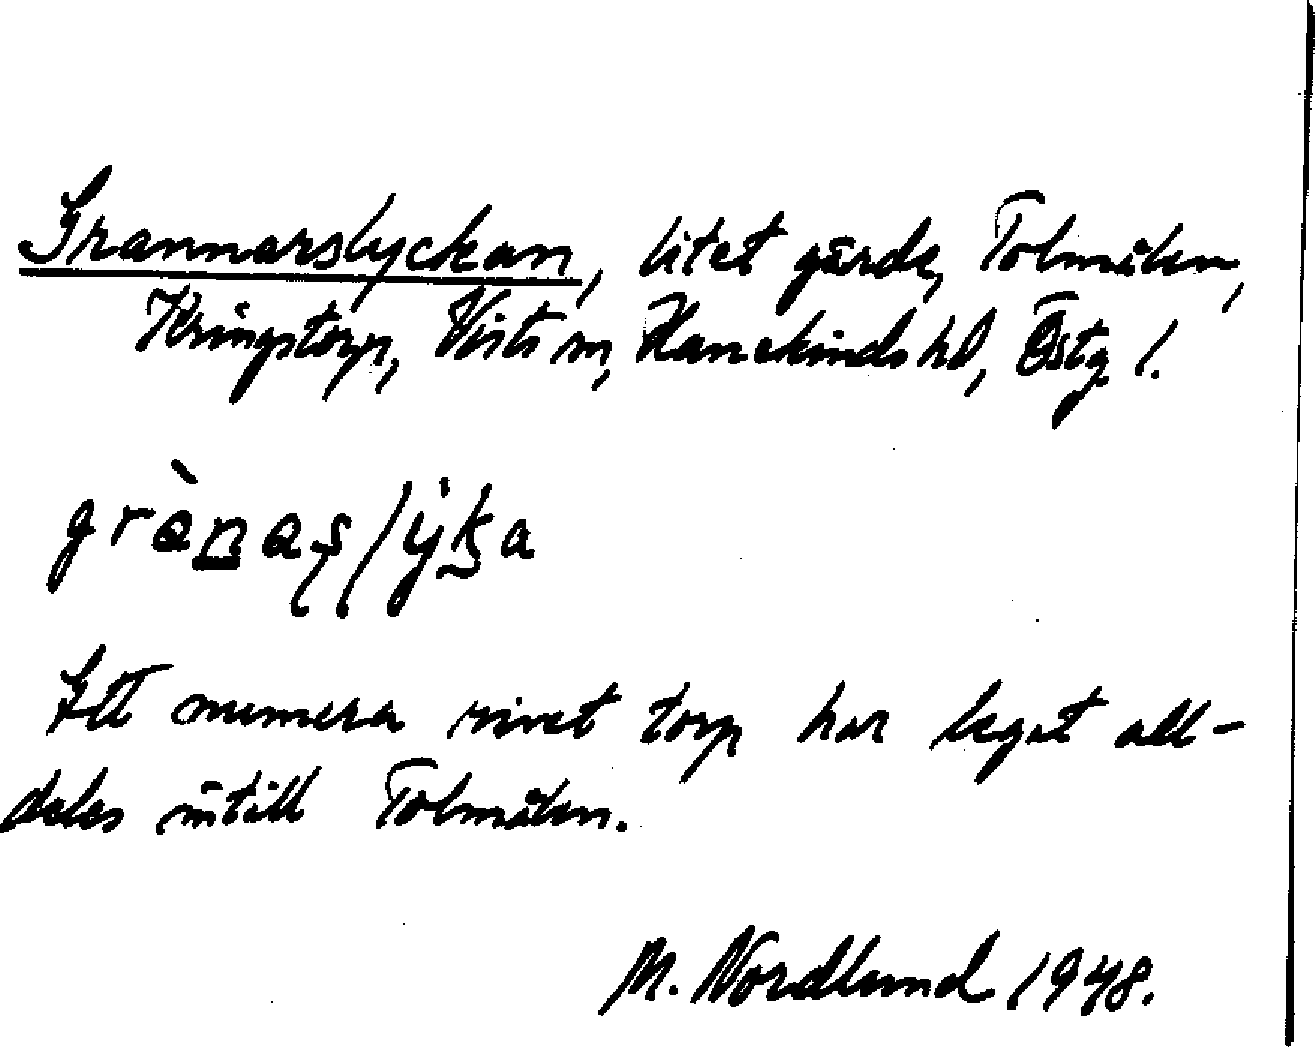 Grannarslyckan, litet gärde, Tolmålen,
Kringstorp, Vists sn, Hanekinds hd, Östg l.
grànaslyka
Ett numera rivet torp har legat all-
deles intill Tolmålen.
M. Nordlund 1948.